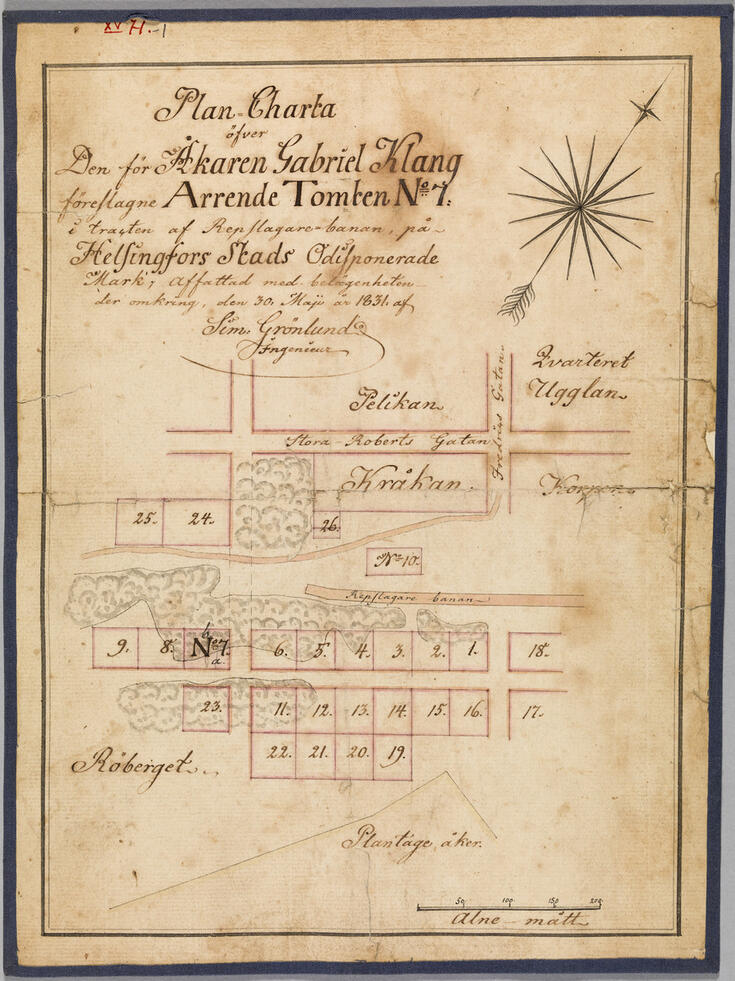 XV H.-1
Plan-Charta
öfver
Den för Åkaren Gabriel Klang
föreslagne Arrende Tomten No 7.
i tracten af Repslagare-banan, på
Helsingfors Stads Odisponerade
Mark; Affattad med belägenheten
der omkring, den 30. Maji år 1831. af
Sim. Grönlund
Ingenieur
Qvarteret
Ugglan
Pelikan
Fredriks Gatan
Stora-Roberts Gatan
Kråkan.
Korpen
25. 24. 26.
No 10.
Repslagare banan
9. 8. No 7. b. a. 6. 5. 4. 3. 2. 1. 18.
23. 11. 12. 13. 14. 15. 16. 17.
22. 21. 20. 19.
Röberget.
Plantage åker.
50. 100. 150. 200.
Alne-mått